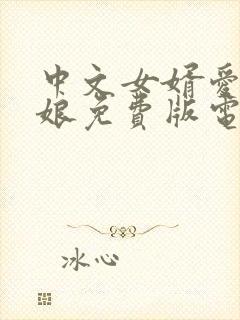 中文女婿爱
娘免费版电
冰心